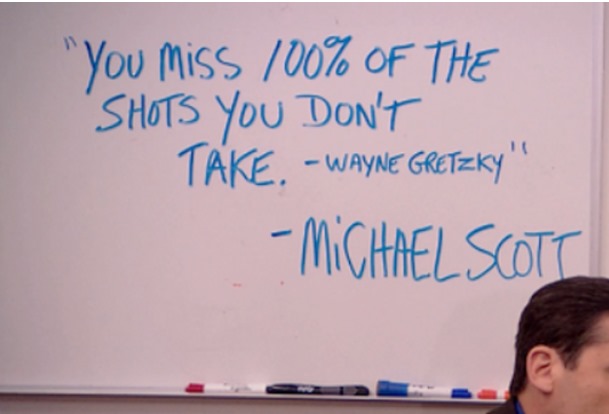 "YOU MISS 100% OF THE
SHOTS YOU DON'T
TAKE. - WAYNE GRETZKY"
- MiCHAEL SCOTT